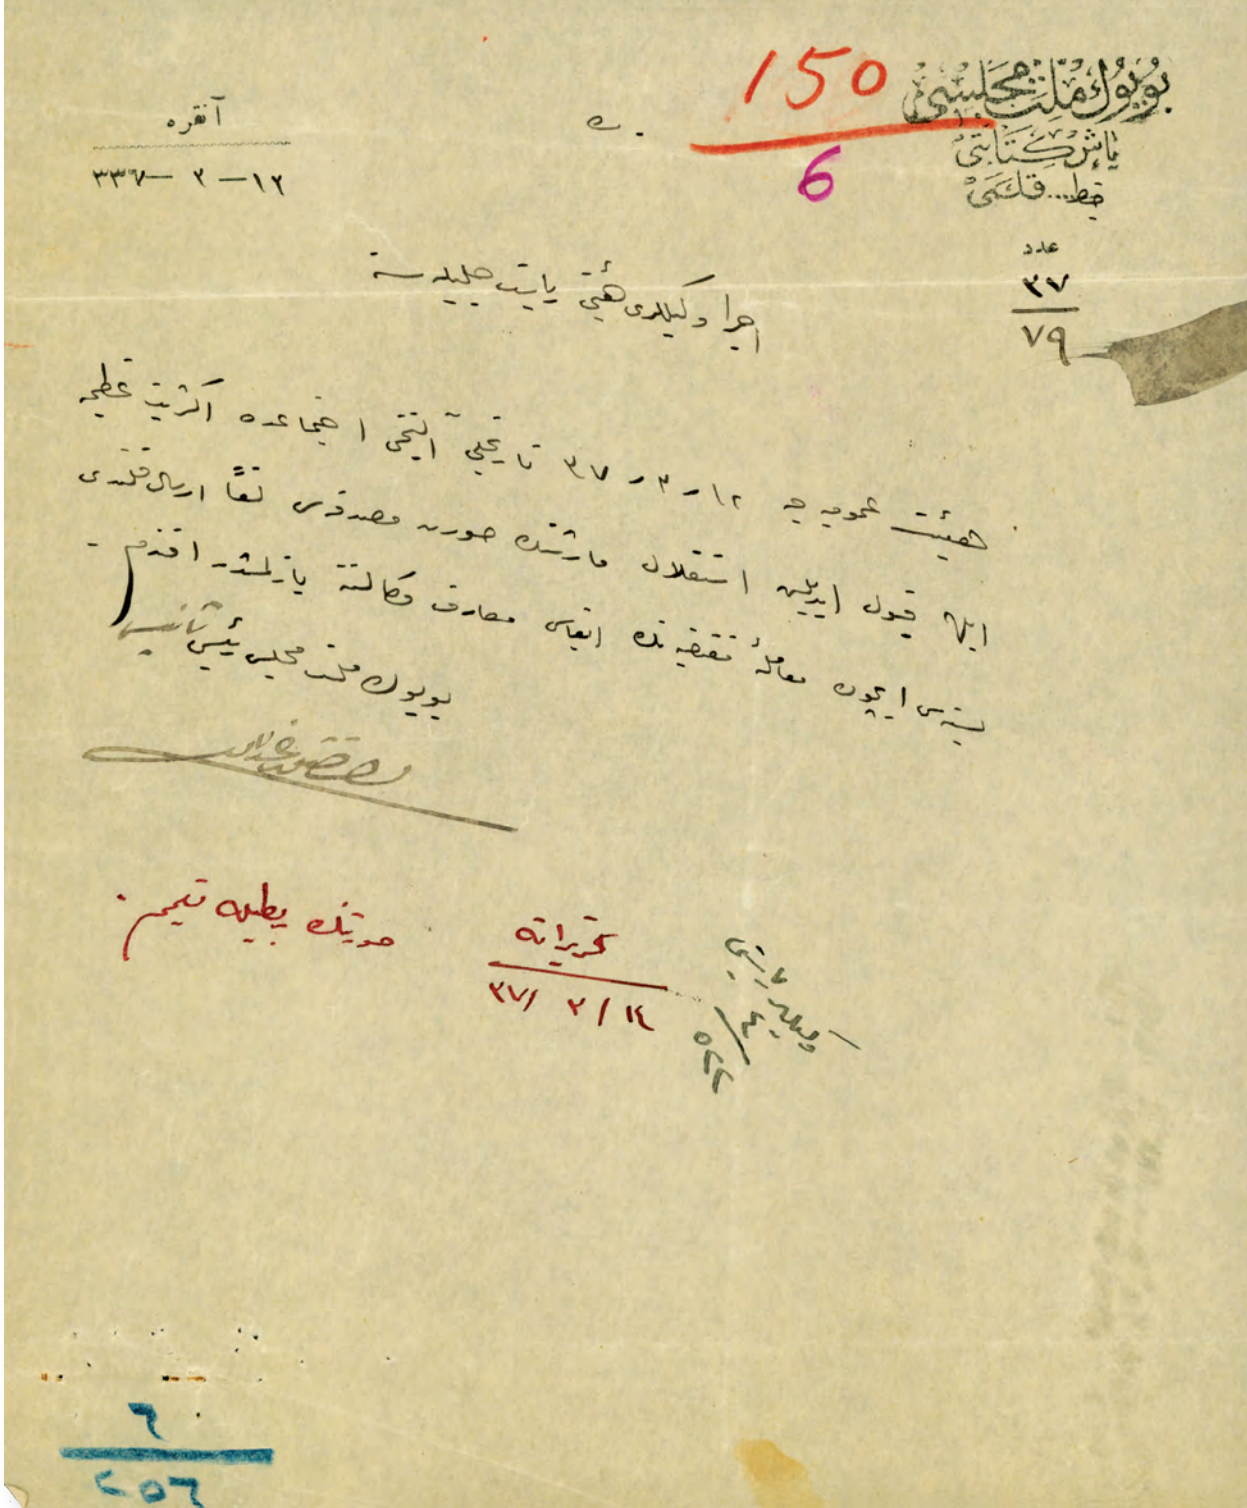 بويوك ملت مجلسى
باش كتابتى
ضبط ... قلمى
150
6
آنقره
١٢ – ٣ – ٣٣٧
عدد
٣٧
٧٩
اجرا وكيللرى هيئتى رياست جليله سنه
هيئت عموميه جه ١٢ ر ٣ ر ٣٧ تاريخلى آلتنجى اجتماعده اكثريت عظيمه
ايله قبول ايديلن استقلال مارشنك صورت مصدقه سى لفاً ارسال قلندى
ايچون معامله مقتضيه نك ايفاسى معارف وكالتنه يازلمشدر افندم .
بويوك ملت مجلسى رئيس ثانيسى
تحريراته
١٤ / ٣ / ٣٧
صورتنك تعميم .
٥٢٢
٦
٢٥٦